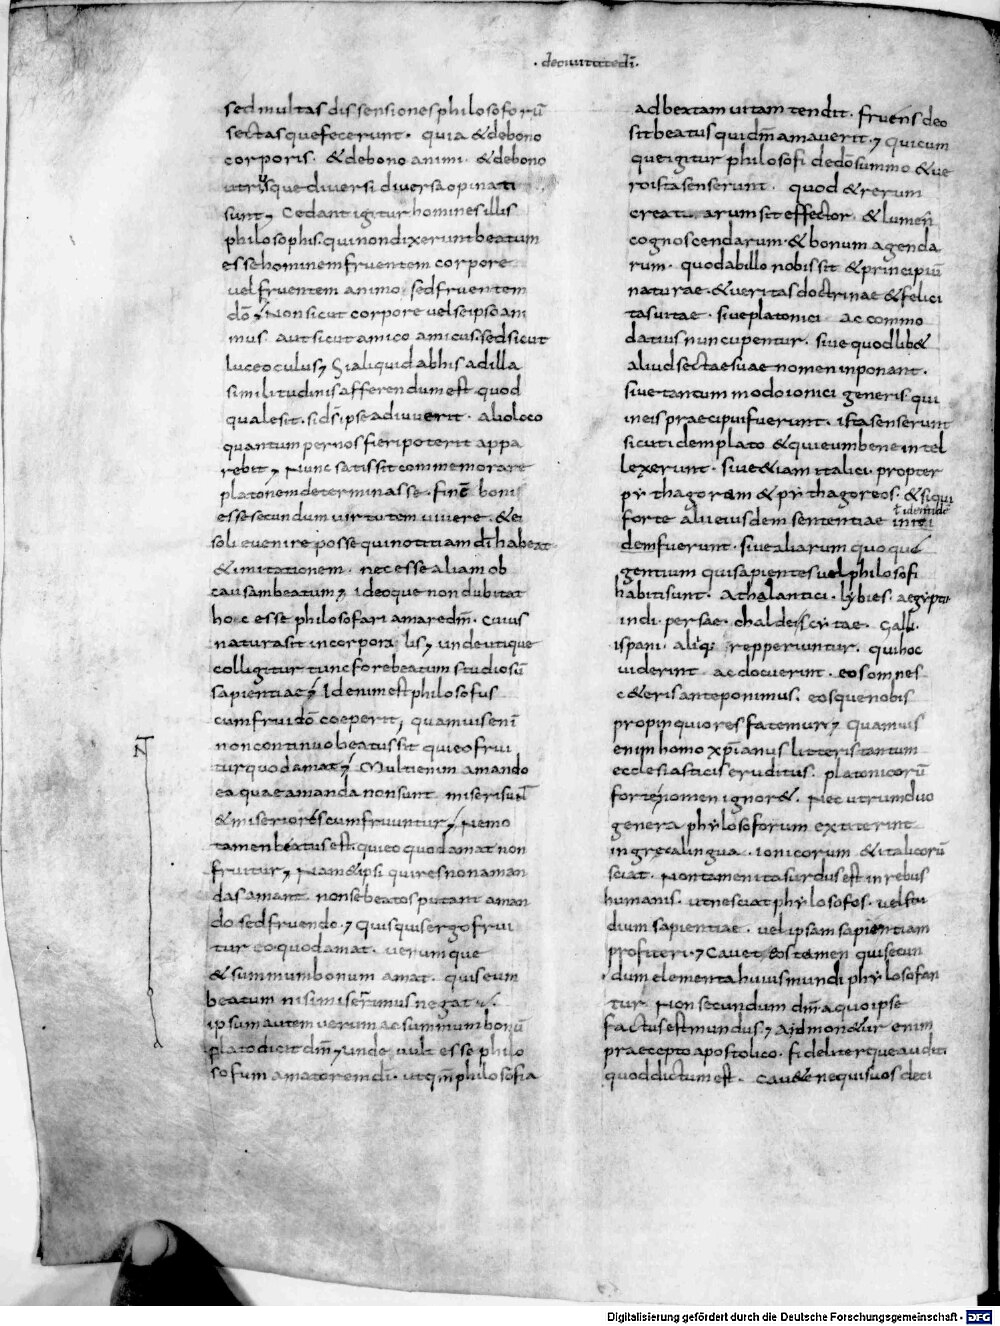 · deciuitate dī ·
sed multas dissensiones philosoforū
sectasque fecerunt · quia & debono
corporis · & debono animi · & debono
utrisque diuersi diuersa opinati
sunt; Cedant igitur homines illis
philosophis · qui non dixerunt beatum
esse hominem fruentem corpore
uel fruentem animo sed fruentem
dō; Non sicut corpore uel se ipso ani
mus · aut sicut amico amicus · sed sicut
luce oculus; Si aliquid ab his ad illa
similitudinis afferendum est quod
quale sit · si dś ipse adiuuerit · alio loco
quantum per nos fieri poterit appa
rebit; Nunc satis sit commemorare
platonem determinasse · finē boni
esse secundum uirtutem uiuere · & ei
soli euenire posse qui notitiam dī habeat
& imitationem · nec esse aliam ob
causam beatum; ideoque non dubitat
hoc esse philosofari amare dm̄ · cuius
natura sit incorporalis; unde utique
colligitur tunc fore beatum studiosū
sapientiae; Id enim est philosofus
cum frui dō coeperit; quamuis enī
non continuo beatus sit qui eo frui
tur quod amat; Multi enim amando
ea quae amanda non sunt miseri sunt
& miseriores cum fruuntur; Nemo
tamen beatus est · qui eo quod amat non
fruitur; Nam & ipsi qui res non aman
das amant non se beatos putant aman
do sed fruendo; Quisquis ergo frui
tur eo quod amat · uerumque
& summum bonum amat · quis eum
beatum nisi miserrimus negat
ipsum autem uerum ac summum bonū
plato dicit dm̄; unde uult esse philo
sofum amatorem dī · ut qm̄ philosofia
ad beatam uitam tendit · fruens deo
sit beatus qui dm̄ amauerit; quicum
que igitur philosofi de dō summo & ue
ro ista senserunt · quod & rerum
creatarum sit effector & lumen
cognoscendarum · & bonum agenda
rum · quod ab illo nobis sit & principiū
naturae · & ueritas doctrinae & felici
tas uitae · siue platonici accommo
datius nuncupentur · siue quodlib&
aliud sectae suae nomen inponant ·
siue tantum modo ionici generis · qui
in eis praecipui fuerunt · ista senserunt
sicut idem plato & qui eum bene intel
lexerunt · siue & iam italici · propter
pythagoram & pythagoreos · & si qui
forte alii eiusdem sententiae
ł identidē
dem fuerunt · siue aliarum quoque
gentium qui sapientes uel philosofi
habiti sunt · Athalantici · lybies · aegyptii
indi · persae · chaldei scytae · Galli ·
ispani · aliq; repperiuntur · qui hoc
uiderint ac docuerint · eos omnes
c&eris anteponimus · eosque nobis
propinquiores fatemur; Quamuis
enim homo xp̄ianus litteris tantum
ecclesiasticis eruditus · platonicorū
forte nomen ignor& · Nec utrum duo
genera phylosoforum extiterint
in greca lingua · ionicorum & italicorū
sciat · Non tamen ita surdus est in rebus
humanis · ut nesciat phylosofos · uel stu
dium sapientiae · uel ipsam sapientiam
profiteri; Cauet eos tamen qui secun
dum elementa huius mundi phylosofan
tur · Non secundum dm̄ a quo ipse
factus est mundus; Admonetur enim
praecepto apostolico · fideliterque audit
quod dictum est · Cauete ne quis uos deci
N
Digitalisierung gefördert durch die Deutsche Forschungsgemeinschaft - DFG